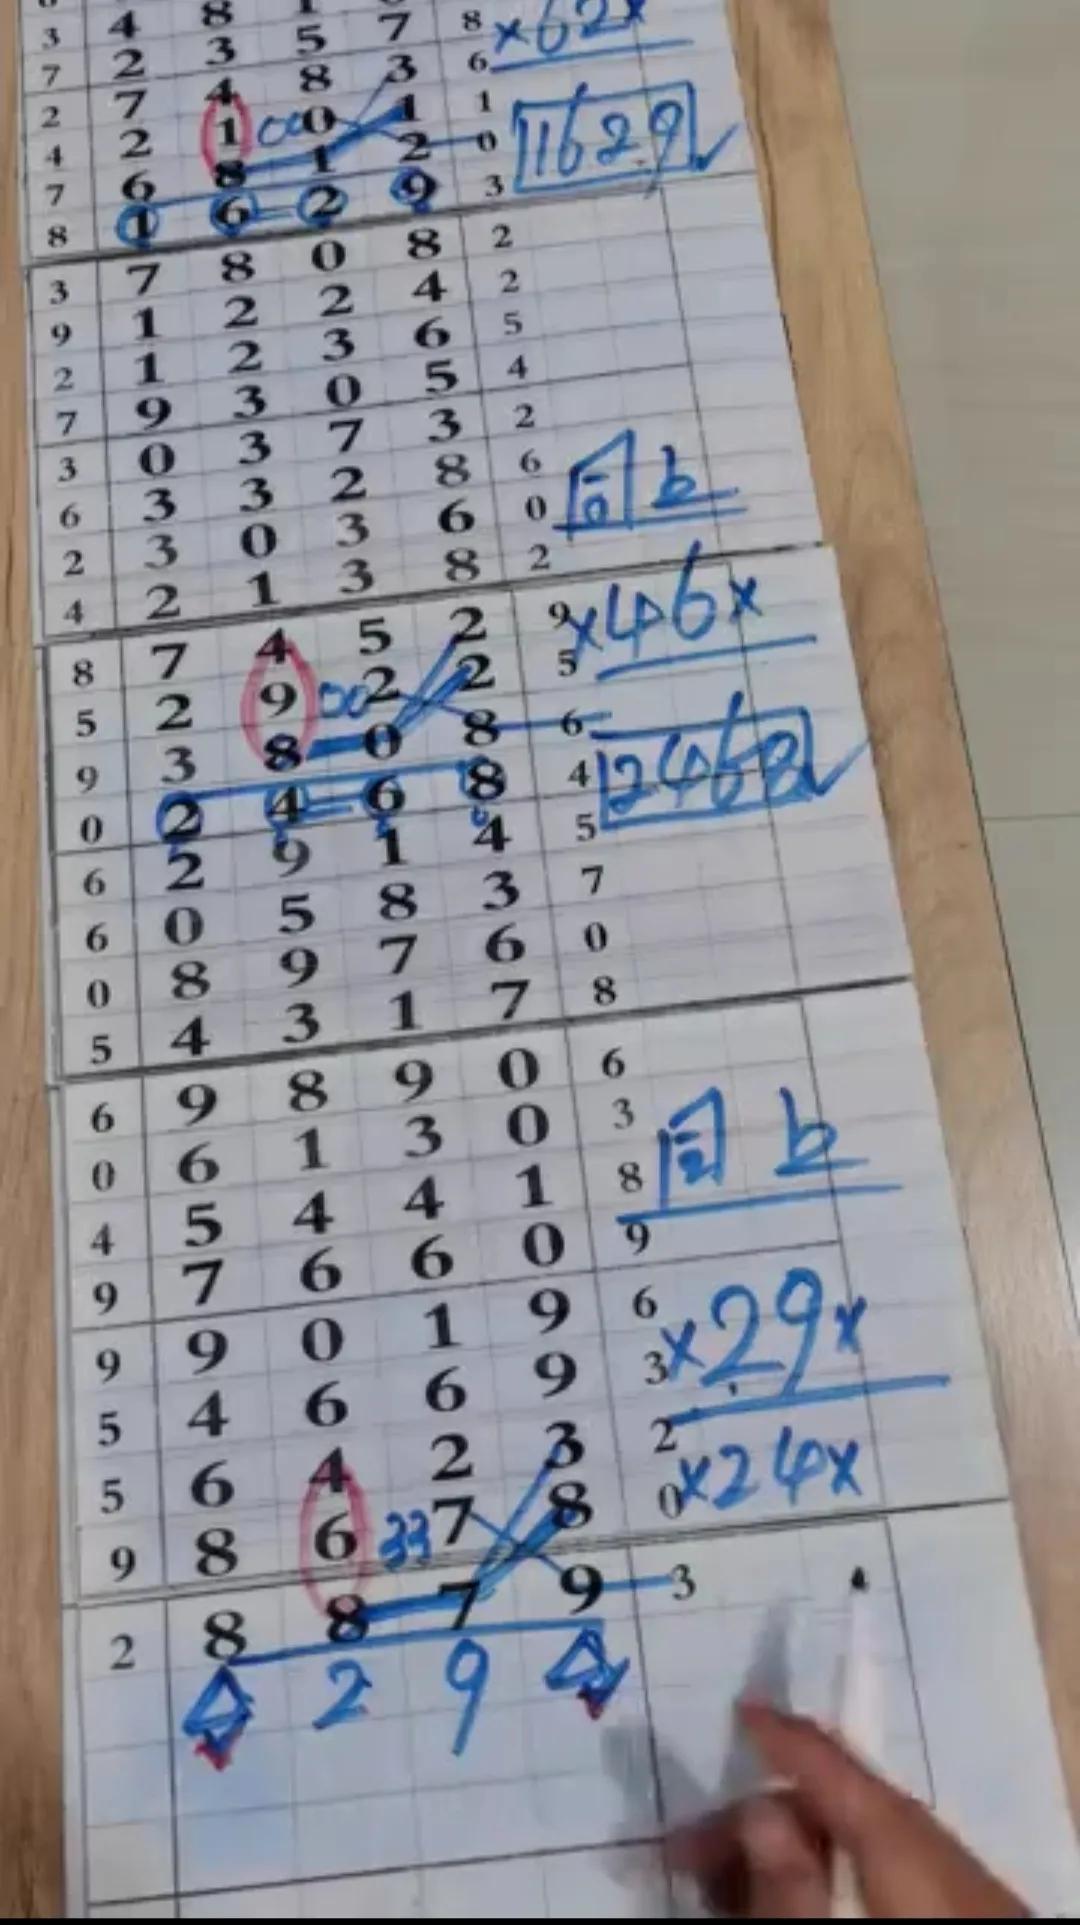 3 4 8 1
7 2 3 5 7 8 x62x
2 7 4 8 3 6
4 2 1 00 0 1 1
7 6 8 1 2 0 1629
8 1 6 2 9 3
3 7 8 0 8 2
9 1 2 2 4 2
2 1 2 3 6 5
7 9 3 0 5 4
3 0 3 7 3 2
6 3 3 2 8 6 b
2 3 0 3 6 0
4 2 1 3 8 2
8 7 4 5 2 9 x46x
5 2 9 00 2 2 5
9 3 8 0 8 6
0 2 4 6 8 4 2468
6 2 9 1 4 5
6 0 5 8 3 7
0 8 9 7 6 0
5 4 3 1 7 8
6 9 8 9 0 6
0 6 1 3 0 3 b
4 5 4 4 1 8
9 7 6 6 0 9
9 9 0 1 9 6 x29x
5 4 6 6 9 3
5 6 4 2 3 2 x24x
9 8 6 33 7 8 0
2 8 8 7 9 3
2 9